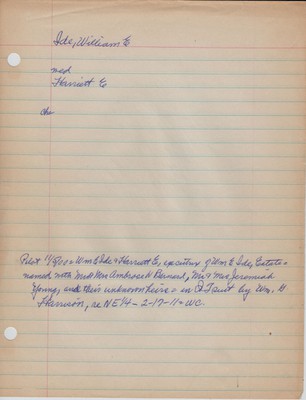 Ide, William E
med
Harriett E
Chr
Wm E Ide & Harriett E, executrix of Wm E Ide, Estate =
named with Mr & Mrs Ambrose H Bernard, Mr & Mrs Jeremiah
Young, and their unknown heirs = in Q T suit by Wm. H
Harrison, re NE 1/4 - 2-17-11 = WC.